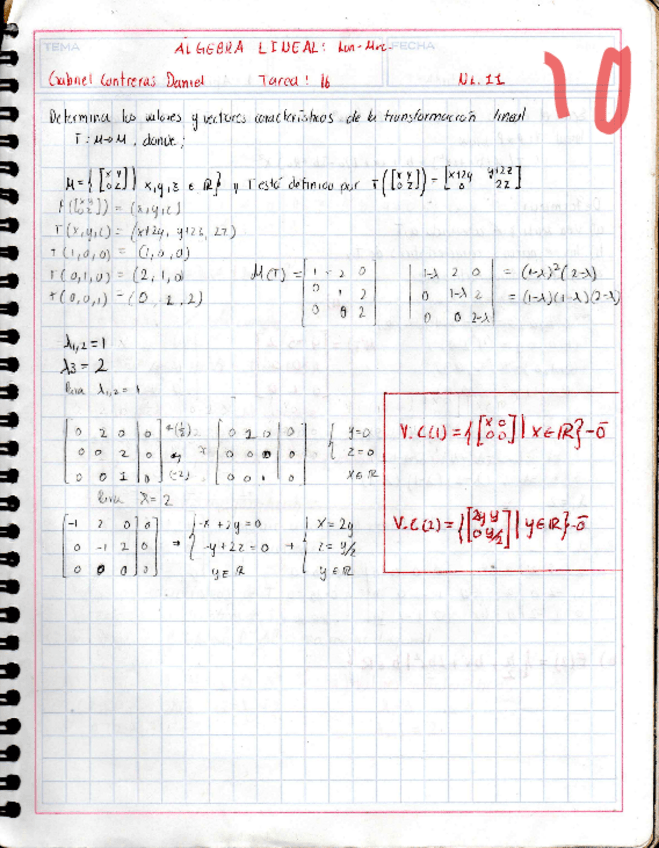 TEMA ALGEBRA LINEAL: Lun-Mie FECHA
10
Gabriel Contreras Daniel Tarea: 16 NL. 11
Determina los valores y vectores característicos de la transformación lineal
T: M→M, donde;
M={[x y; 0 z] | x,y,z ∈ R} y T está definido por T([x y; 0 z]) = [x+2y y+2z; 0 2z]
f([x y; 0 z]) = (x,y,z)
T(x,y,z) = (x+2y, y+2z, 2z)
T(1,0,0) = (1,0,0)
T(0,1,0) = (2,1,0)
T(0,0,1) = (0,2,2)
M(T) = [1 2 0; 0 1 2; 0 0 2] |1-λ 2 0; 0 1-λ 2; 0 0 2-λ| = (1-λ)²(2-λ)
= (1-λ)(1-λ)(2-λ)
λ1,2=1
λ3=2
Para λ1,2=1
[0 2 0 | 0; 0 0 2 | 0; 0 0 1 | 0] (1/2) (-2) [0 1 0 | 0; 0 0 0 | 0; 0 0 1 | 0] { y=0
z=0
x∈R
Para λ=2
[-1 2 0 | 0; 0 -1 2 | 0; 0 0 0 | 0] → { -x+2y=0 → { x=2y
-y+2z=0 z=y/2
y∈R y∈R
V.C(1)={[x 0; 0 0] | x∈R}-0̄
V.C(2)={[2y y; 0 y/2] | y∈R}-0̄